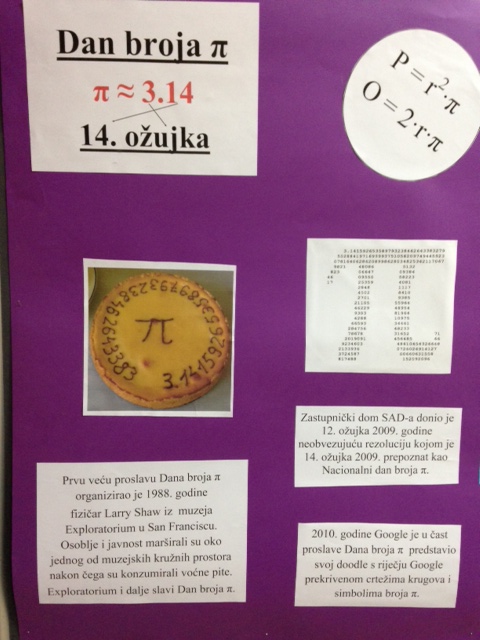 Dan broja π
π ≈ 3.14
14. ožujka
P = r²·π
O = 2·r·π
π
3.14159265358979323846264
Prvu veću proslavu Dana broja π
organizirao je 1988. godine
fizičar Larry Shaw iz muzeja
Exploratorium u San Franciscu.
Osoblje i javnost marširali su oko
jednog od muzejskih kružnih prostora
nakon čega su konzumirali voćne pite.
Exploratorium i dalje slavi Dan broja π.
Zastupnički dom SAD-a donio je
12. ožujka 2009. godine
neobvezujuću rezoluciju kojom je
14. ožujka 2009. prepoznat kao
Nacionalni dan broja π.
2010. godine Google je u čast
proslave Dana broja π predstavio
svoj doodle s riječju Google
prekrivenom crtežima krugova i
simbolima broja π.